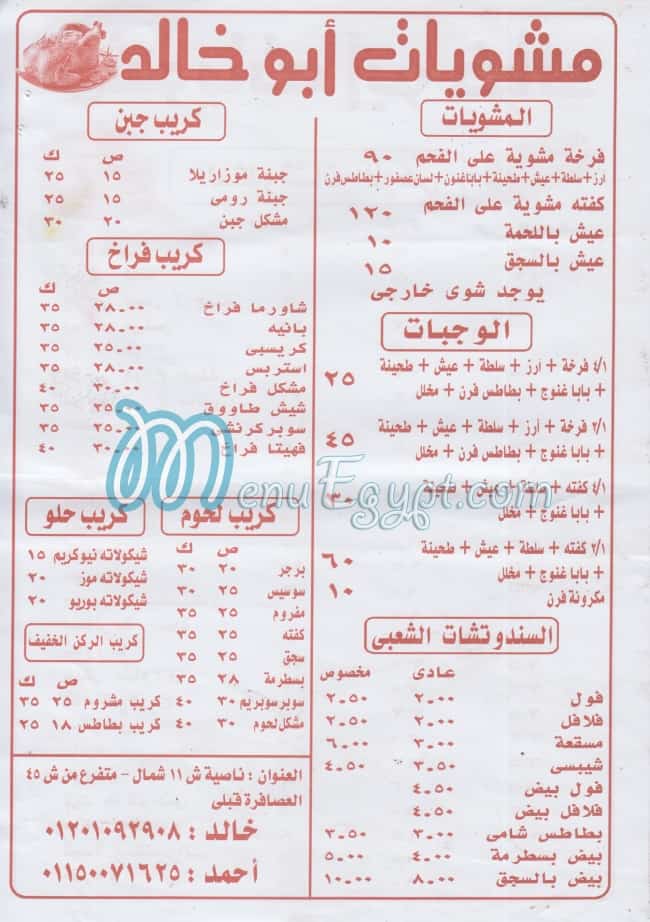 مشويات أبو خالد
المشويات
فرخة مشوية على الفحم ٩٠
أرز + سلطة + عيش + طحينة + باباغنون + لسان عصفور + بطاطس فرن
كفته مشوية على الفحم ١٢٠
عيش باللحمة ١٠
عيش بالسجق ١٥
يوجد شوى خارجى
الوجبات
٤/١ فرخة + أرز + سلطة + عيش + طحينة
+ بابا غنوج + بطاطس فرن + مخلل ٢٥
٢/١ فرخة + أرز + سلطة + عيش + طحينة
+ بابا غنوج + بطاطس فرن + مخلل ٤٥
٤/١ كفته + سلطة + عيش + طحينة
+ بابا غنوج + مخلل ٣٠
٢/١ كفته + سلطة + عيش + طحينة
+ بابا غنوج + مخلل ٦٠
مكرونة فرن ١٠
السندوتشات الشعبى
عادى مخصوص
فول ٢.٠٠ ٢.٥٠
فلافل ٢.٠٠ ٢.٥٠
مسقعة ٣.٠٠ ٦.٠٠
شيبسى ٣.٥٠ ٤.٥٠
فول بيض ٤.٥٠
فلافل بيض ٤.٥٠
بطاطس شامى ٣.٠٠ ٣.٥٠
بيض بسطرمة ٤.٠٠ ٥.٠٠
بيض بالسجق ٨.٠٠ ١٠.٠٠
كريب جبن
ص ك
جبنة موزاريلا ١٥ ٢٥
جبنة رومى ١٥ ٢٥
مشكل جبن ٢٠ ٣٠
كريب فراخ
ص ك
شاورما فراخ ٢٨.٠٠ ٣٥
بانيه ٢٨.٠٠ ٣٥
كريسبى ٢٥.٠٠ ٣٥
استربس ٢٨.٠٠ ٣٥
مشكل فراخ ٣٠.٠٠ ٤٠
شيش طاووق ٢٥ ٣٥
سوبر كرنشى ٢٥.٠٠ ٣٥
فهيتا فراخ ٣٠.٠٠ ٤٠
MenuEgypt.com
كريب لحوم
ص ك
برجر ٢٠ ٣٠
سوسيس ٢٥ ٣٠
مفروم ٢٥ ٣٥
كفته ٢٥ ٣٥
سجق ٢٥ ٣٥
بسطرمة ٢٨ ٣٥
سوبر سوبريم ٣٠ ٤٠
مشكل لحوم ٣٠ ٤٠
كريب حلو
شيكولاته نيوكريم ١٥
شيكولاته موز ٢٠
شيكولاته بوريو ٢٠
كريب الركن الخفيف
ص ك
كريب مشروم ٢٥ ٣٥
كريب بطاطس ١٨ ٢٥
العنوان : ناصية ش ١١ شمال - متفرع من ش ٤٥
العصافرة قبلى
خالد : ٠١٢٠١٠٩٢٩٠٨
أحمد : ٠١١٥٠٠٧١٦٢٥